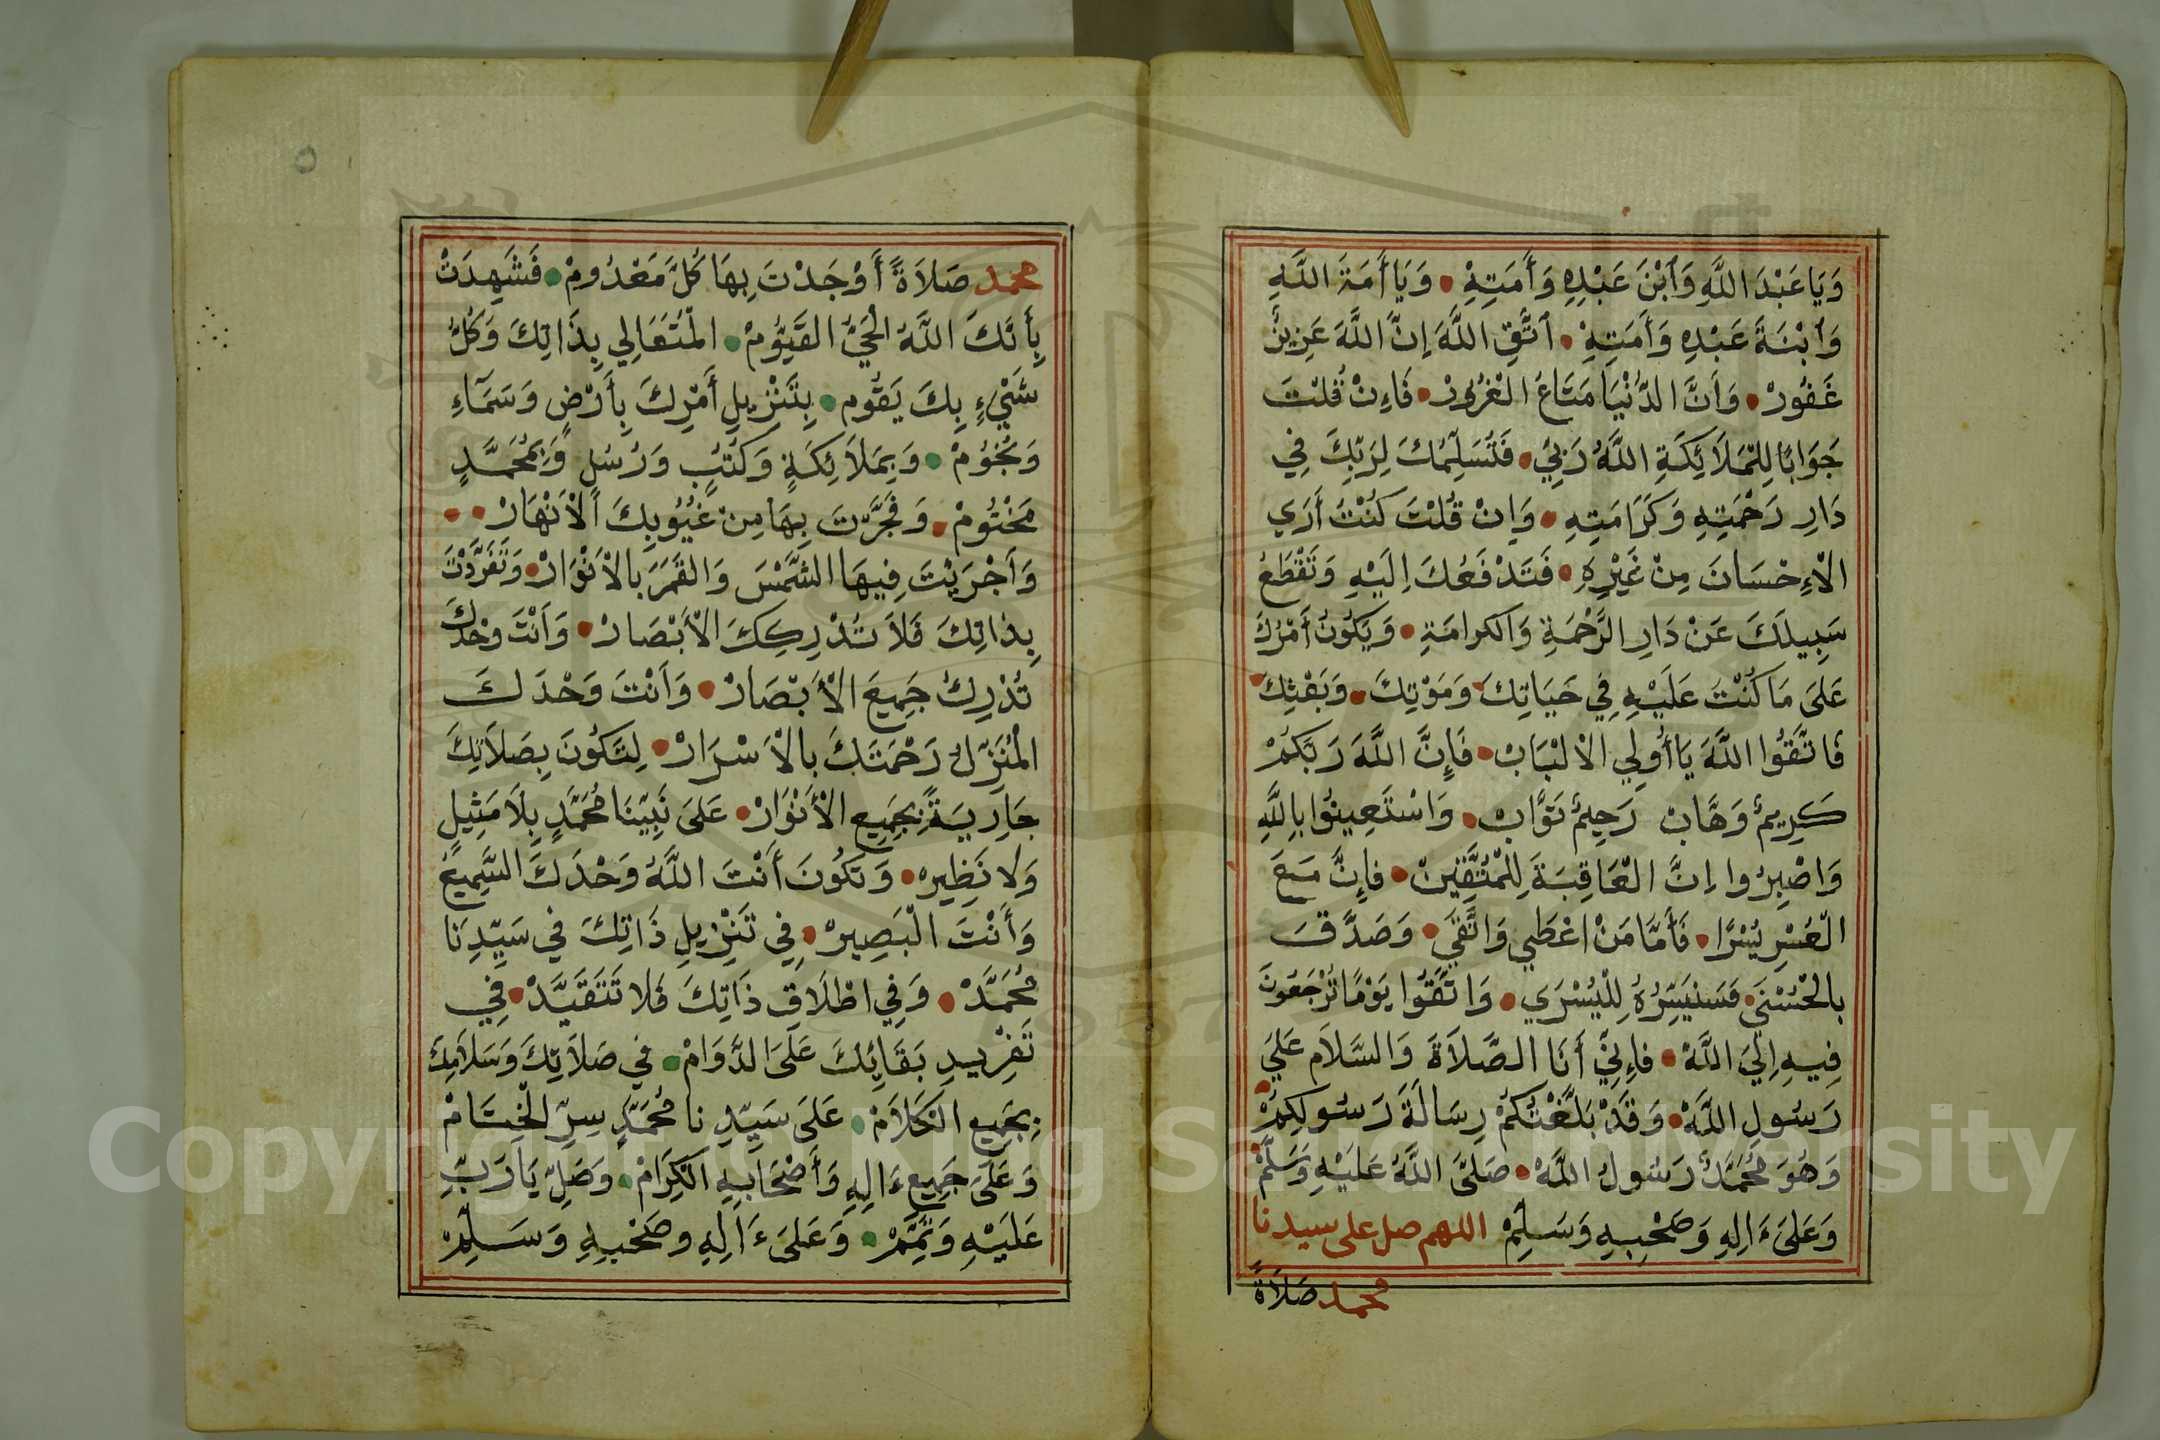 وَيَا عَبْدَ اللَّهِ وَٱبْنَ عَبْدِهِ وَأَمَتِهِ • وَيَا أَمَةَ اللَّهِ
وَٱبْنَةَ عَبْدِهِ وَأَمَتِهِ • ٱتَّقِ اللَّهَ اِنَّ اللَّهَ عَزِيزٌ
غَفُورْ • وَاَنَّ الدُّنْيَا مَتَاعُ الْغُرُورْ • فَاءِنْ قُلْتَ
جَوَابًا لِلْمَلَائِكَةِ اللَّهُ رَبِّيْ • فَتُسَلِّمُكَ لِرَبِّكَ فِي
دَارِ رَحْمَتِهِ وَكَرَامَتِهِ • وَاِنْ قُلْتَ كُنْتُ أَرَي
الْاءِحْسَانَ مِنْ غَيْرِهِ • فَتَدْفَعُكَ اِلَيْهِ وَتَقْطَعُ
سَبِيلَكَ عَنْ دَارِ الرَّحْمَةِ وَالكرامَةِ • وَيَكُونُ أَمْرُكَ
عَلَى مَا كُنْتَ عَلَيْهِ فِي حَيَاتِكَ وَمَوْتِكَ • وَبَعْثِكَ
فَاتَّقُوا اللَّهَ يَا أُولِي الْالْبَابْ • فَإِنَّ اللَّهَ رَبَّكُمْ
كَرِيمٌ وَهَّابْ رَحِيمٌ تَوَّابْ • وَاسْتَعِينُوا بِاللَّهِ
وَاصْبِرُوا اِنَّ الْعَاقِبَةَ لِلْمُتَّقِينْ • فَإِنَّ مَعَ
الْعُسْرِ يُسْرًا • فَأَمَّا مَنْ اعْطَي وَاتَّقَي • وَصَدَّقَ
بِالْحُسْنَي • فَسَنُيَسِّرُهُ لِلْيُسْرَي • وَاتَّقُوا يَوْمًا تُرْجَعُونَ
فِيهِ اِلَيَ اللَّهْ • فَاِنِّي أَنَا الصَّلَاةَ وَالسَّلَام عَلَيَ
رَسُولِ اللَّهْ • وَقَدْ بَلَّغْتُكُمْ رِسَالَةَ رَسُولِكِمُ
وَهُوَ مُحَمَّدٌ رَسُولُ اللَّهْ • صَلَّى اللَّهُ عَلَيْهِ وَسَلَّمْ
وَعَلَىَ ءَالِهِ وَصَحْبِهِ وَسَلِّمْ اللهم صل على سيدنا
محمد صَلَاةً
محمد صَلَاةً أَوْجَدْتَ بِهَا كُلَّ مَعْدُومْ • فَشَهِدَتْ
بِأَنَّكَ اللَّهُ الْحَيُّ القَيُّومْ • الْمُتَعَالِي بِذَاتِكَ وَكُلُّ
شَيْءٍ بِكَ يَقُوم • بِتَنْزِيلِ أَمْرِكَ بِأَرْضٍ وَسَمَاءٍ
وَنُجُومْ • وَبِمَلَائِكَةٍ وَكُتُبٍ وَرُسُلٍ وَبِمُحَمَّدٍ
مَخْتُومْ • وَفَجَّرْتَ بِهَا مِنْ غُيُوبِكَ الْأَنْهَارْ •
وَاَجْرَيْتَ فِيهَا الشَّمْسَ وَالقَمَرَ بالْأَنْوَارْ • وَتَفَرَّدْتَ
بِذَاتِكَ فَلَا تُدْرِكِكَ الْأَبْصَارْ • وَأَنْتَ وَحْدَكَ
تُدْرِكُ جَمِيعَ الْأَبْصَارْ • وَأَنْتَ وَحْدَكَ
الْمُنَزِّلُ رَحْمَتَكَ بالْأَسْرَارْ • لِتَكُونَ بِصَلَاتِكَ
جَارِيَةً بِجَمِيعِ الْأَنْوَارْ • عَلَىَ نَبِيِّنَا مُحَمَّدٍ بِلَا مَثِيلٍ
وَلَا نَظِيرِه • وَتَكُونَ أَنْتَ اللَّهُ وَحْدَكَ السَّمِيعُ
وَأَنْتَ الْبَصِيرْ • فِي تَنْزِيلِ ذَاتِكَ فِي سَيِّدِنَا
مُحَمَّدْ • وَفِي اطْلَاقِ ذَاتِكَ فَلَا تَتَقَيَّدْ • فِي
تَفْرِيدِ بَقَائِكَ عَلَىَ الدَّوَامْ • فِي صَلَاتِكَ وَسَلَامِكَ
بِجَمِيعِ الكَلَامْ • عَلَىَ سَيِّدِنا مُحَمَّدٍ سِرِّ الْخِتَامْ
وَعَلَىَ جَمِيعِ ءَالِهِ وَأَصْحَابِهِ الكِرَامْ • وَصَلِّ يَا رَبِّ
عَلَيْهِ وَتَمِّمْ • وَعَلَىَ ءَالِهِ وصَحْبِهِ وَسَلِّمْ
Copyright © King Saud University
1957